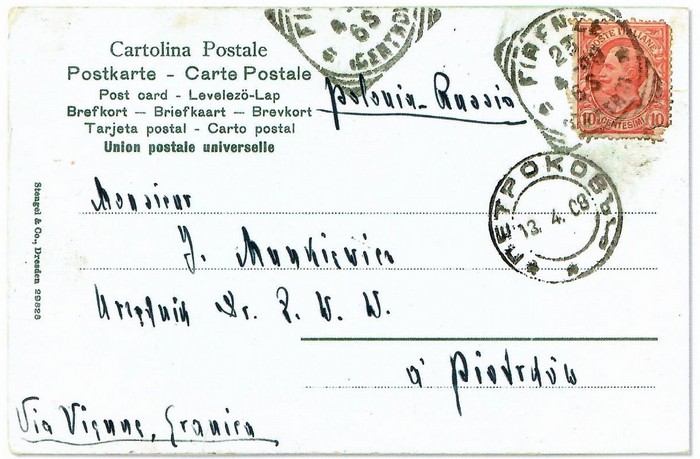 Cartolina Postale
Postkarte - Carte Postale
Post card - Levelező-Lap
Brefkort — Briefkaart — Brevkort
Tarjeta postal - Carto postal
Union postale universelle
Polonia-Russia
FIRENZE
CENTRO
POSTE ITALIANE
10 CENTESIMI 10
ПЕТРОКОВЪ
13. 4. 08
Monsieur
J. Munkiewicz
Urzędnik Dr. Ż. W. W.
à Piotrków
Via Vienne, Granica
Stengel & Co., Dresden 29828